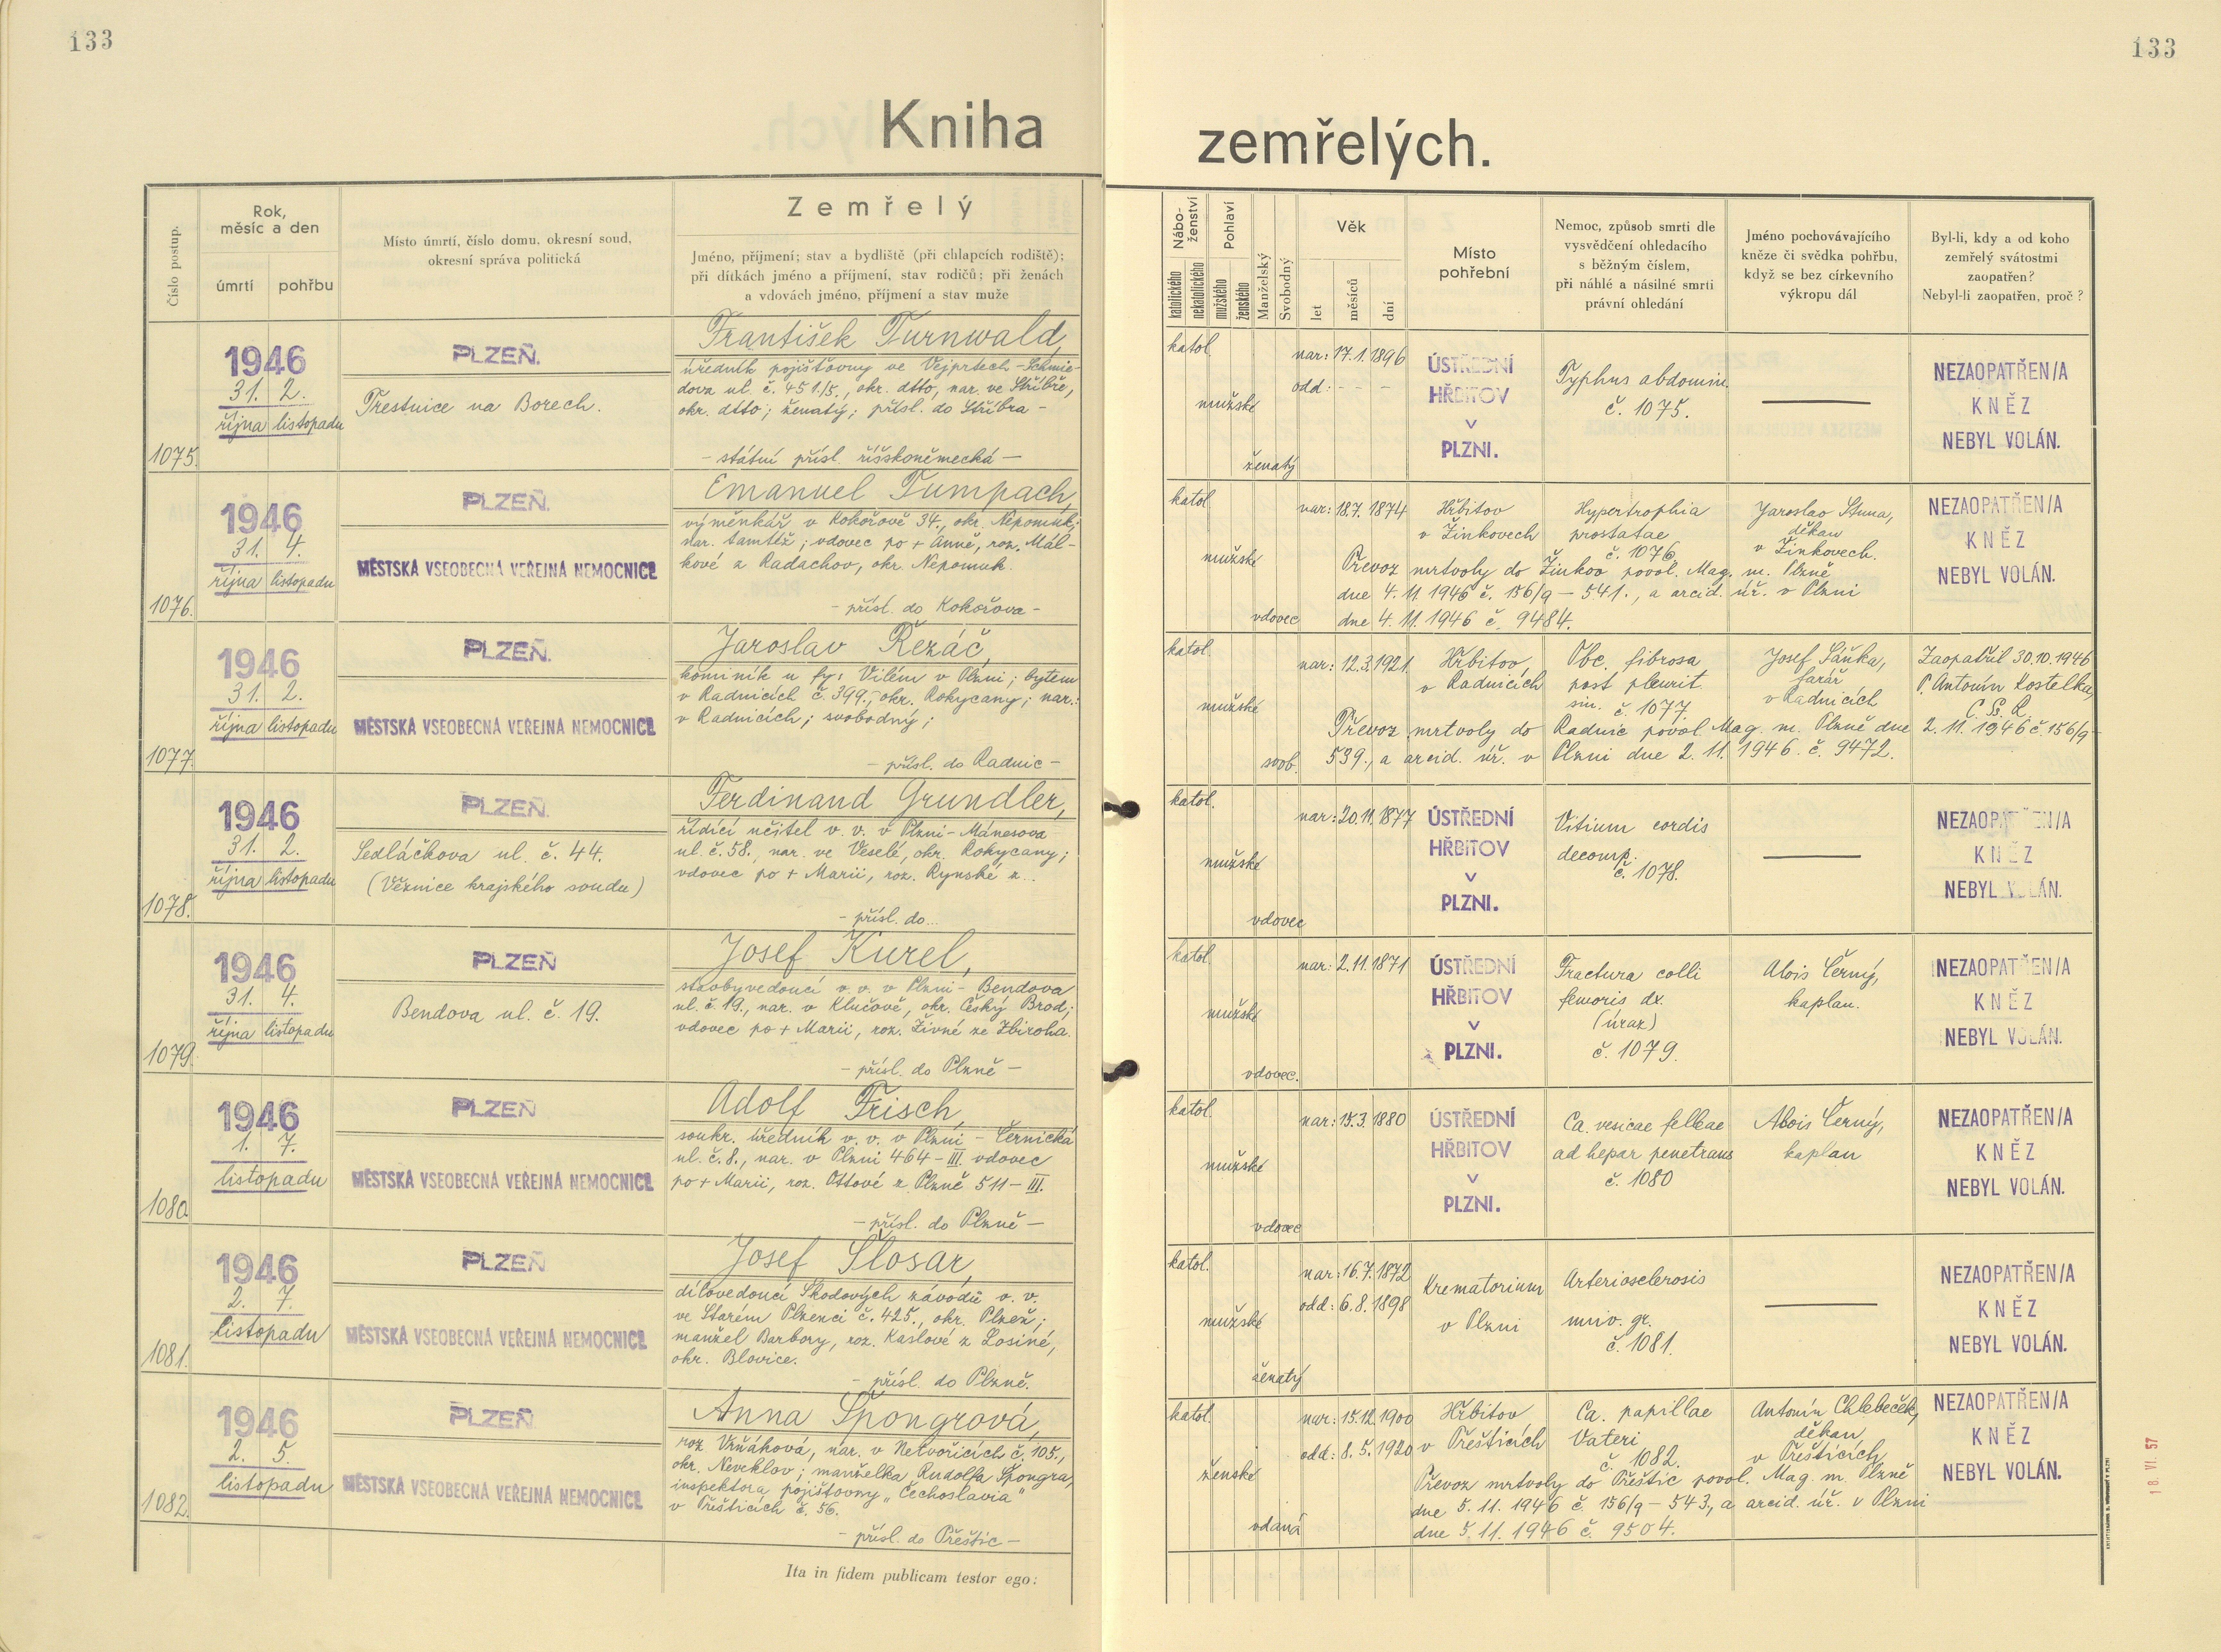 133
133
Kniha zemřelých.
Číslo postup.
Rok,
měsíc a den
úmrtí
pohřbu
Místo úmrtí, číslo domu, okresní soud,
okresní správa politická
Zemřelý
Jméno, příjmení; stav a bydliště (při chlapcích rodiště);
při dítkách jméno a příjmení, stav rodičů; při ženách
a vdovách jméno, příjmení a stav muže
Nábo-
ženství
katolického
nekatolického
Pohlaví
mužského
ženského
Manželský
Svobodný
Věk
let
měsíců
dní
Místo
pohřební
Nemoc, způsob smrti dle
vysvědčení ohledacího
s běžným číslem,
při náhlé a násilné smrti
právní ohledání
Jméno pochovávajícího
kněze či svědka pohřbu,
když se bez církevního
výkropu dál
Byl-li, kdy a od koho
zemřelý svátostmi
zaopatřen?
Nebyl-li zaopatřen, proč?
1075.
1946
31. 2.
října listopadu
PLZEŇ.
Trestnice na Borech.
František Turnwald,
úředník pojišťovny ve Vejprtech - Schmie-
dova ul. č. 451./5., okr. dtto, nar. ve Stříbře,
okr. dtto; ženatý; přísl. do Stříbra -
- státní přísl. říšskoněmecká -
katol.
mužské
ženatý
nar: 17. 1. 1896
odd: - - -
ÚSTŘEDNÍ
HŘBITOV
V
PLZNI.
Typhus abdomin.
č. 1075.
NEZAOPATŘEN/A
KNĚZ
NEBYL VOLÁN.
1076.
1946
31. 4.
října listopadu
PLZEŇ.
MĚSTSKÁ VŠEOBECNÁ VEŘEJNÁ NEMOCNICE
Emanuel Tumpach,
výměnkář v Kokořově 34., okr. Nepomuk;
nar. tamtéž; vdovec po + Anně, roz. Mál-
kové z Radachov, okr. Nepomuk.
- přísl. do Kokořova -
katol.
mužské
vdovec
nar: 18. 7. 1874
Hřbitov
v Žinkovech
Hypertrophia
prostatae
č. 1076
Jaroslav Stuna,
děkan
v Žinkovech.
Převoz mrtvoly do Žinkov povol. Mag. m. Plzně
dne 4. 11. 1946 č. 156/9 - 541., a arcid. úř. v Plzni
dne 4. 11. 1946 č. 9484.
NEZAOPATŘEN/A
KNĚZ
NEBYL VOLÁN.
1077.
1946
31. 2.
října listopadu
PLZEŇ.
MĚSTSKÁ VŠEOBECNÁ VEŘEJNÁ NEMOCNICE
Jaroslav Řezáč,
kominík u fy: Vilém v Plzni; bytem
v Radnicích č 399., okr. Rokycany; nar.:
v Radnicích; svobodný;
- přísl. do Radnic -
katol.
mužské
svob.
nar: 12. 3. 1921.
Hřbitov,
v Radnicích
Obc. fibrosa
post pleurit.
sin. č. 1077.
Josef Šaňka,
farář
v Radnicích
Zaopatřil 30. 10. 1946
P. Antonín Kostelka,
C. Ss. R.
Převoz mrtvoly do Radnic povol. Mag. m. Plzně dne 2. 11. 1946 č. 156/9-
539., a arcid. úř. v Plzni dne 2. 11. 1946. č. 9472.
1078.
1946
31. 2.
října listopadu
PLZEŇ.
Sedláčkova ul. č. 44.
(Věznice krajského soudu)
Ferdinand Grundler,
řídící učitel v. v. v Plzni - Mánesova
ul. č. 58., nar. ve Veselé, okr. Rokycany;
vdovec po + Marii, roz. Rynské z...
- přísl. do...
katol.
mužské
vdovec
nar: 20. 11. 1877
ÚSTŘEDNÍ
HŘBITOV
V
PLZNI.
Vitium cordis
decomp.
č. 1078.
NEZAOPATŘEN/A
KNĚZ
NEBYL VOLÁN.
1079.
1946
31. 4.
října listopadu
PLZEŇ
Bendova ul. č. 19.
Josef Kurel,
stavbyvedoucí v. v. v Plzni - Bendova
ul. č. 19., nar. v Klučově, okr. Český Brod;
vdovec po + Marii, roz. Živné ze Zbiroha.
- přísl. do Plzně -
katol.
mužské
vdovec.
nar: 2. 11. 1871
ÚSTŘEDNÍ
HŘBITOV
V
PLZNI.
Fractura colli
femoris dx.
(úraz)
č. 1079.
Alois Černý,
kaplan.
NEZAOPATŘEN/A
KNĚZ
NEBYL VOLÁN.
1080.
1946
1. 7.
listopadu
PLZEŇ
MĚSTSKÁ VŠEOBECNÁ VEŘEJNÁ NEMOCNICE
Adolf Frisch,
soukr. úředník v. v. v Plzni - Černická
ul. č. 8., nar. v Plzni 464 - III. vdovec
po + Marii, roz. Ottové z Plzně 511 - III.
- přísl. do Plzně -
katol.
mužské
vdovec
nar: 15. 3. 1880
ÚSTŘEDNÍ
HŘBITOV
V
PLZNI.
Ca. vesicae felleae
ad hepar penetrans
č. 1080
Alois Černý,
kaplan
NEZAOPATŘEN/A
KNĚZ
NEBYL VOLÁN.
1081.
1946
2. 7.
listopadu
PLZEŇ
MĚSTSKÁ VŠEOBECNÁ VEŘEJNÁ NEMOCNICE
Josef Šlosar,
dílovedoucí Škodových závodů v. v.
ve Starém Plzenci č. 425., okr. Plzeň;
manžel Barbory, roz. Kaslové z Losiné,
okr. Blovice.
- přísl. do Plzně.
katol.
mužské
ženatý
nar: 16. 7. 1872
odd: 6. 8. 1898
Krematorium
v Plzni
Arteriosclerosis
univ. gr.
č. 1081.
NEZAOPATŘEN/A
KNĚZ
NEBYL VOLÁN.
1082.
1946
2. 5.
listopadu
PLZEŇ
MĚSTSKÁ VŠEOBECNÁ VEŘEJNÁ NEMOCNICE
Anna Špongrová,
roz. Vrňáková, nar. v Netvořicích č. 105.,
okr. Neveklov; manželka Rudolfa Špongra,
inspektora pojišťovny „Čechoslavia"
v Přešticích č. 56.
- přísl. do Přeštic -
katol.
ženské
vdaná
nar: 15. 12. 1900
odd: 8. 5. 1920
Hřbitov
v Přešticích
Ca. papillae
Vateri
č. 1082.
Antonín Chlebeček,
děkan
v Přešticích
Převoz mrtvoly do Přeštic povol. Mag. m. Plzně
dne 5. 11. 1946 č. 156/9 - 543, a arcid. úř. v Plzni
dne 5. 11. 1946 č. 9504.
NEZAOPATŘEN/A
KNĚZ
NEBYL VOLÁN.
Ita in fidem publicam testor ego:
18. VI. 57